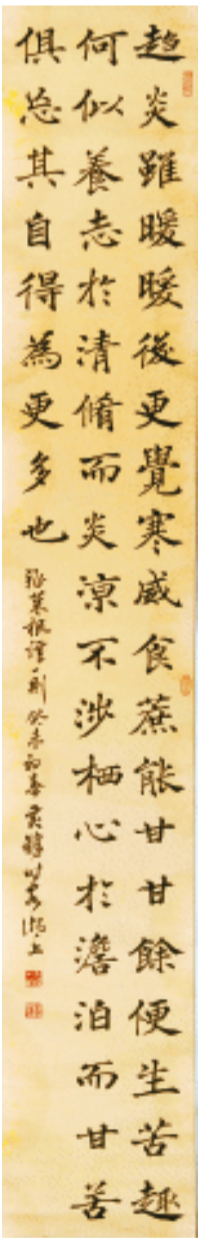 趋炎雖暖暖後更覺寒威食蔗能甘甘餘便生苦趣
何似養志於清脩而炎涼不涉栖心於澹泊而甘苦
俱忘其自得為更多也
錄菜根譚一則 癸未初春